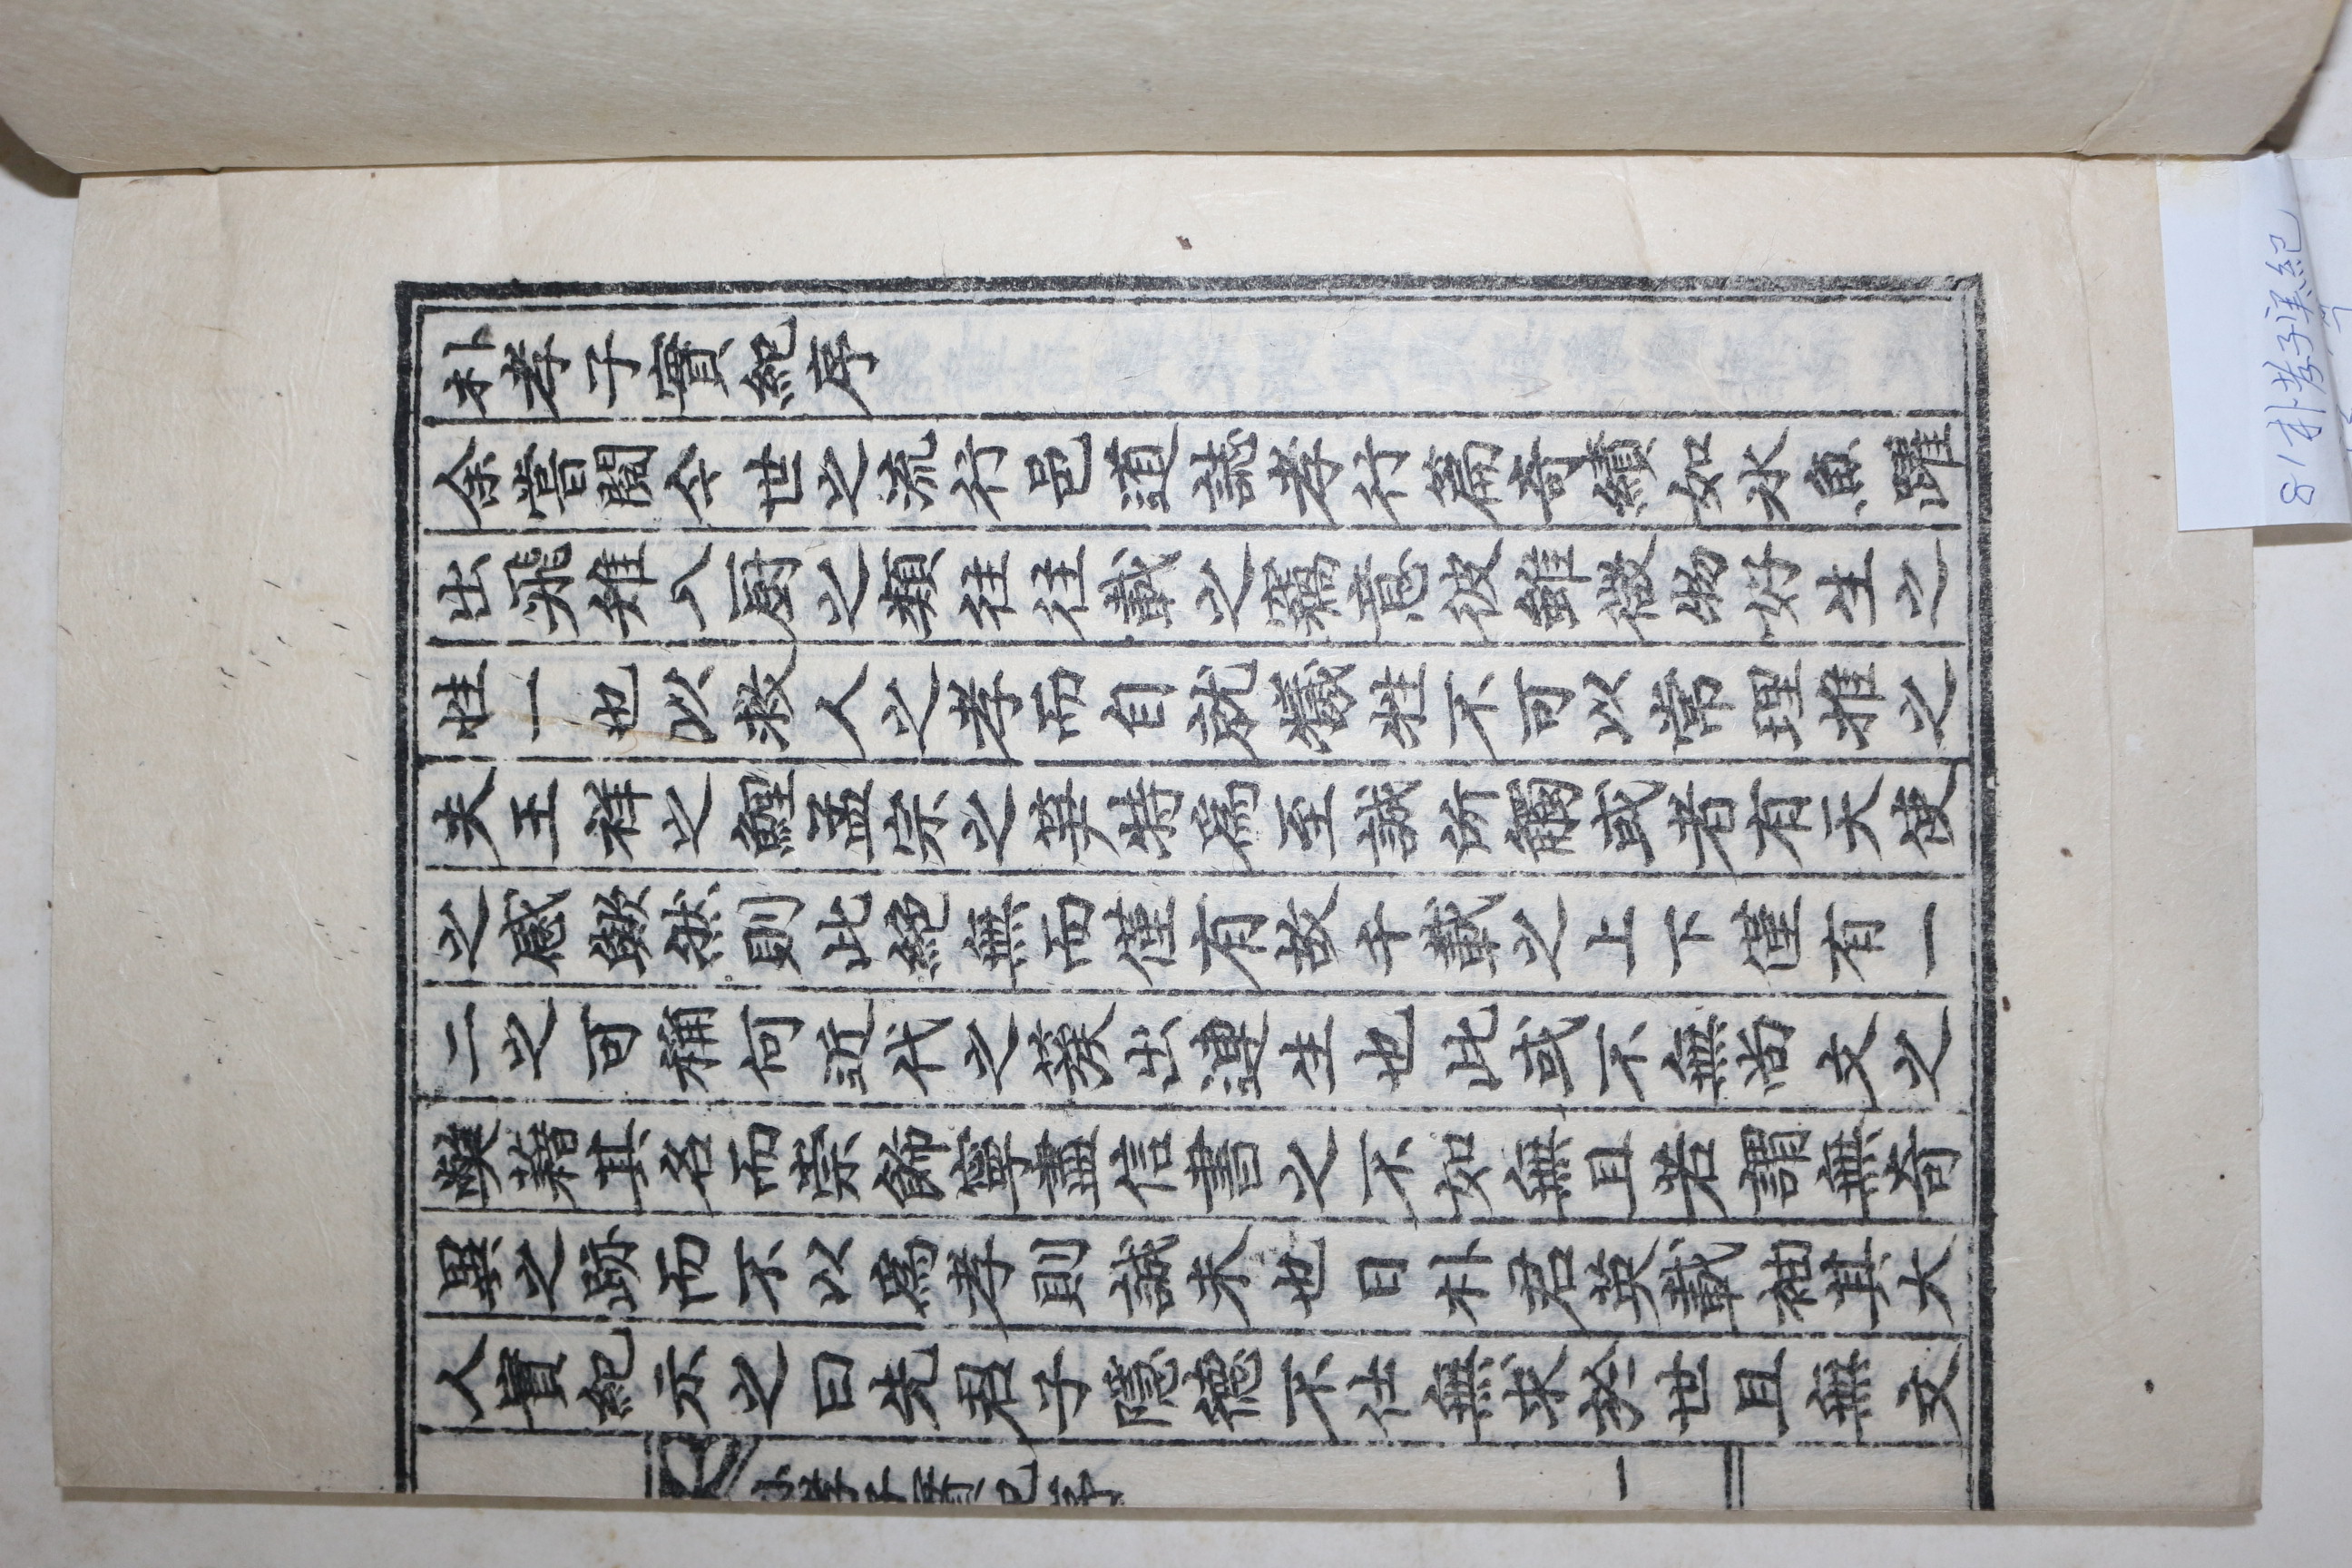 朴孝子實紀序
余嘗閱今世之流行邑道誌孝行篇奇績如氷魚躍
出飛雉入厨之類往往載之竊意彼雖微物好生之
性一也以救人之孝而自就犧牲不可以常理推之
夫王祥之鯉孟宗之笋特爲至誠所觸或者有天使
之感歟然則此絶無而僅有故千載之上下僅有一
二之可稱何近代之葉出遝生也此或不無尚文之
弊藉其名而崇餙寧盡信書之不如無且若謂無奇
異之跡而不以爲孝則誠未也日朴君英載袖其大
人實紀示之曰先君子隱德不仕無求於世且無文
朴孝子實紀序 一
81 朴孝子實紀